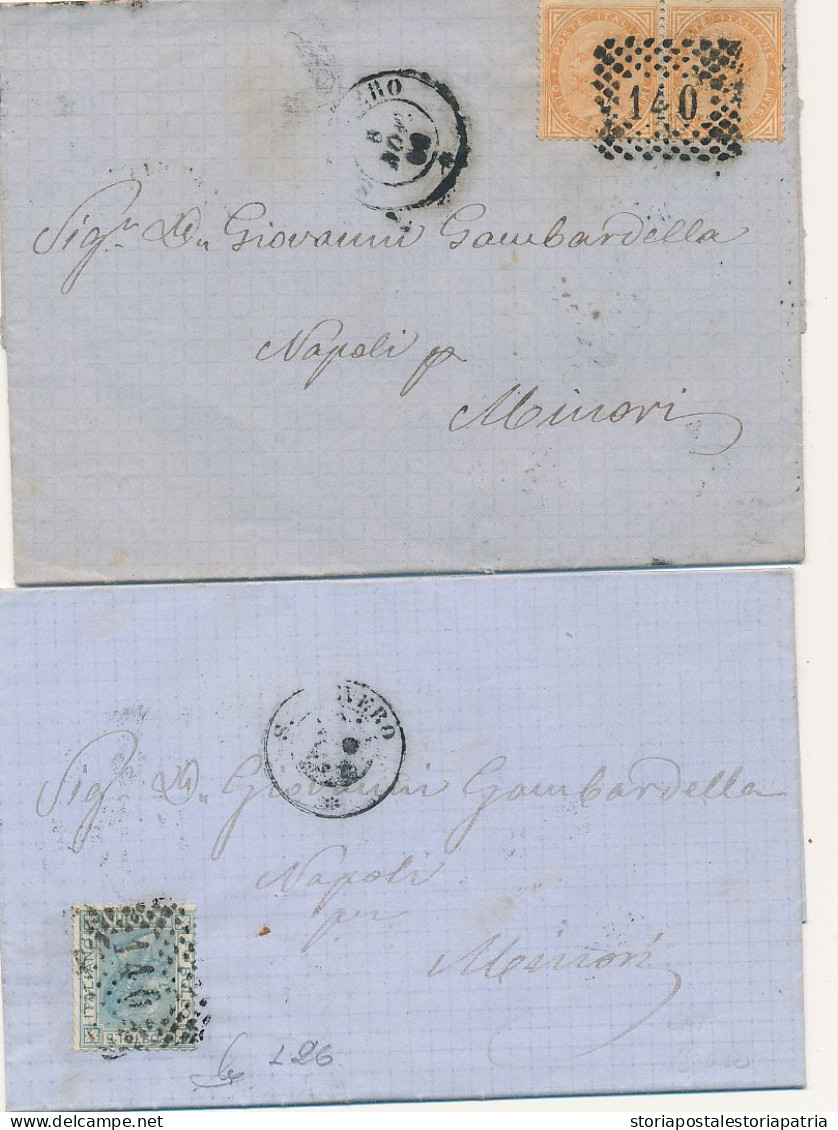 POSTE ITALIANE
140
Sig.r Dn Giovanni Gambardella
Napoli p
Minori
S. SEVERO
Sig.r Dn Giovanni Gambardella
Napoli
per
Minori
140
ITALIANO
L 26
storiapostalestoriapatria